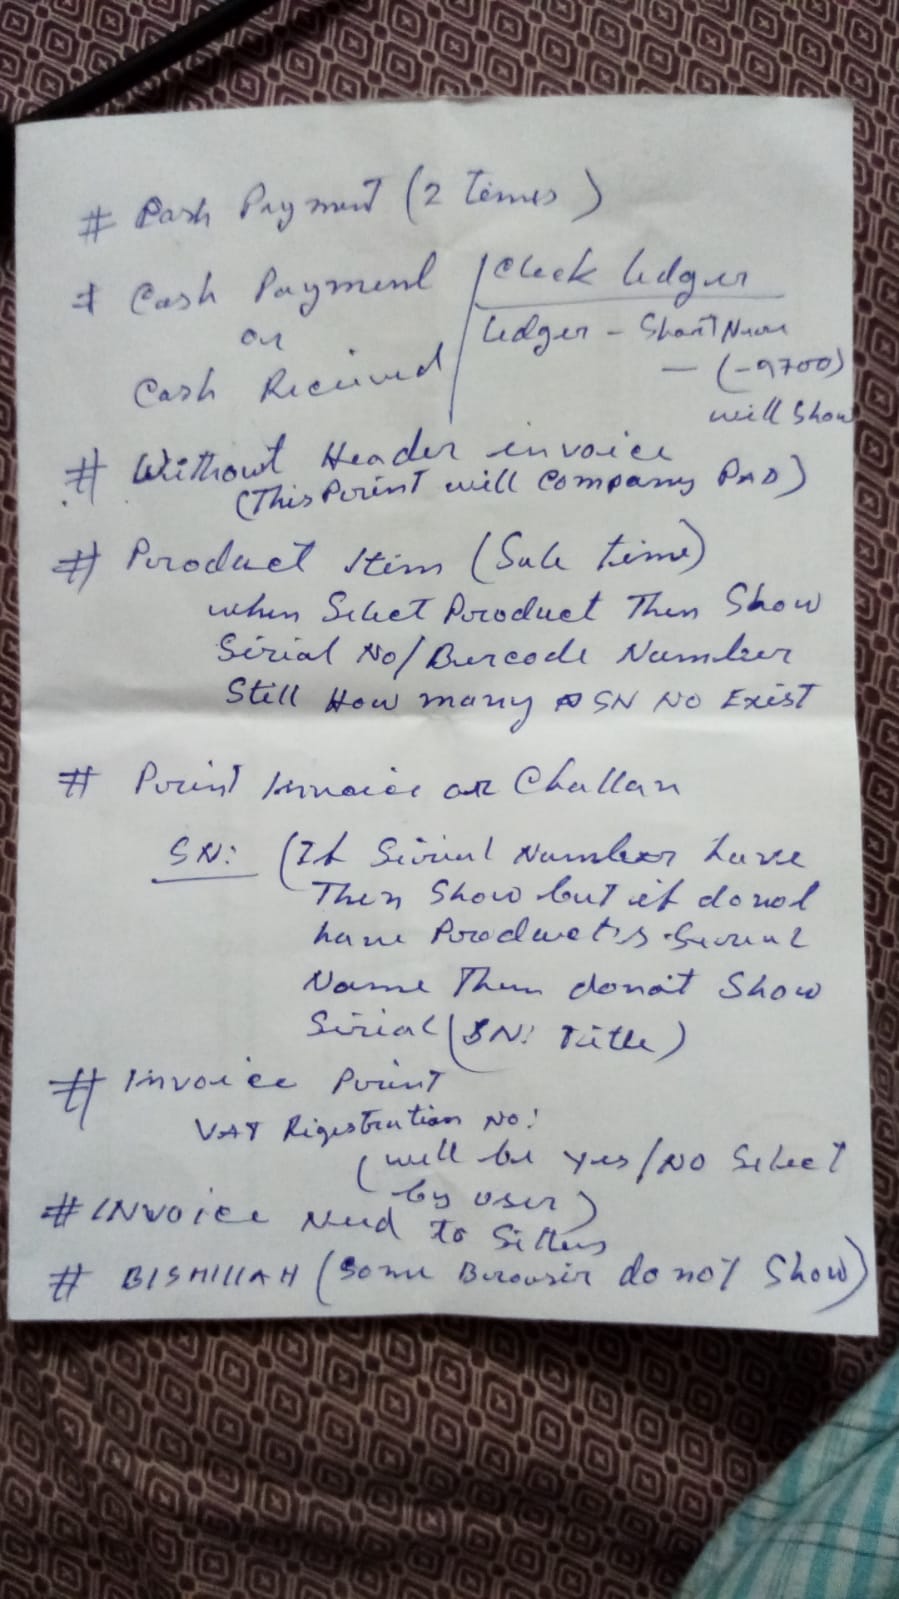 # Cash Payment (2 times)
# Cash Payment
or
Cash Received
Check ledger
ledger - Short Name
- (-9700)
will show
# Without Header invoice
(This Print will Company PAD)
# Product Item (Sale time)
when Select Product Then Show
Serial No/Barcode Number
Still How many SN NO Exist
# Print Invoice or Challan
SN: (If Serial Number have
Then Show but if do not
have Product's Serial
Name Then donot Show
Serial (SN: Title)
# Invoice Print
VAT Rigestration No:
(will be Yes/NO Select
by user)
# INVOICE Need to
# BISMILLAH (Some Browser do not Show)